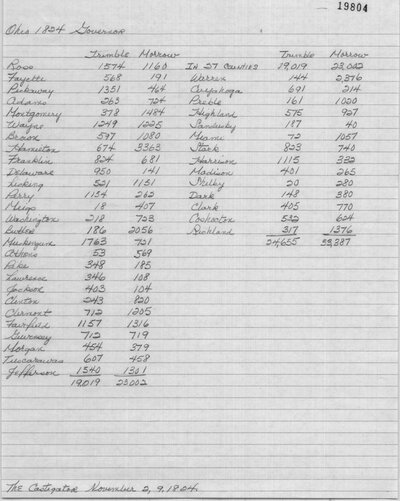 19804
Ohio 1824 Governor
Trimble Morrow Trimble Morrow
Ross 1574 1160 In 27 Counties 19,019 23,002
Fayette 568 191 Warren 144 2,376
Pickaway 1351 464 Cuyahoga 691 214
Adams 263 724 Preble 161 1020
Montgomery 378 1484 Highland 575 927
Wayne 1249 1225 Sandusky 187 40
Brown 597 1080 Miami 72 1057
Hamilton 674 3363 Stark 823 740
Franklin 824 681 Harrison 1115 332
Delaware 950 141 Madison 401 265
Licking 521 1151 Shelby 20 280
Perry 1154 262 Dark 148 380
Meigs 18 407 Clark 405 770
Washington 218 723 Coshocton 532 624
Butler 186 2056 Richland 317 1376
Muskingum 1763 721 24,655 33,387
Athens 53 569
Pike 348 185
Lawrence 346 108
Jackson 403 104
Clinton 243 820
Clermont 712 1205
Fairfield 1157 1316
Guernsey 712 719
Morgan 454 379
Tuscarawas 607 458
Jefferson 1540 1301
19,019 23,002
The Castigator November 2, 9, 1824